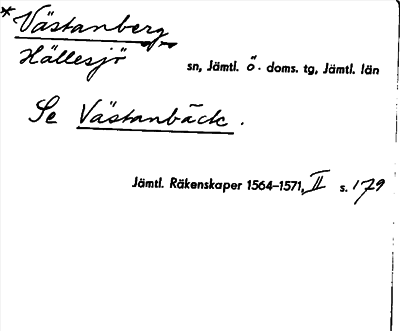 *Västanberg
Hällesjö sn, Jämtl. ö. doms. tg, Jämtl. län
Se Västanbäck.
Jämtl. Räkenskaper 1564–1571, II s. 179